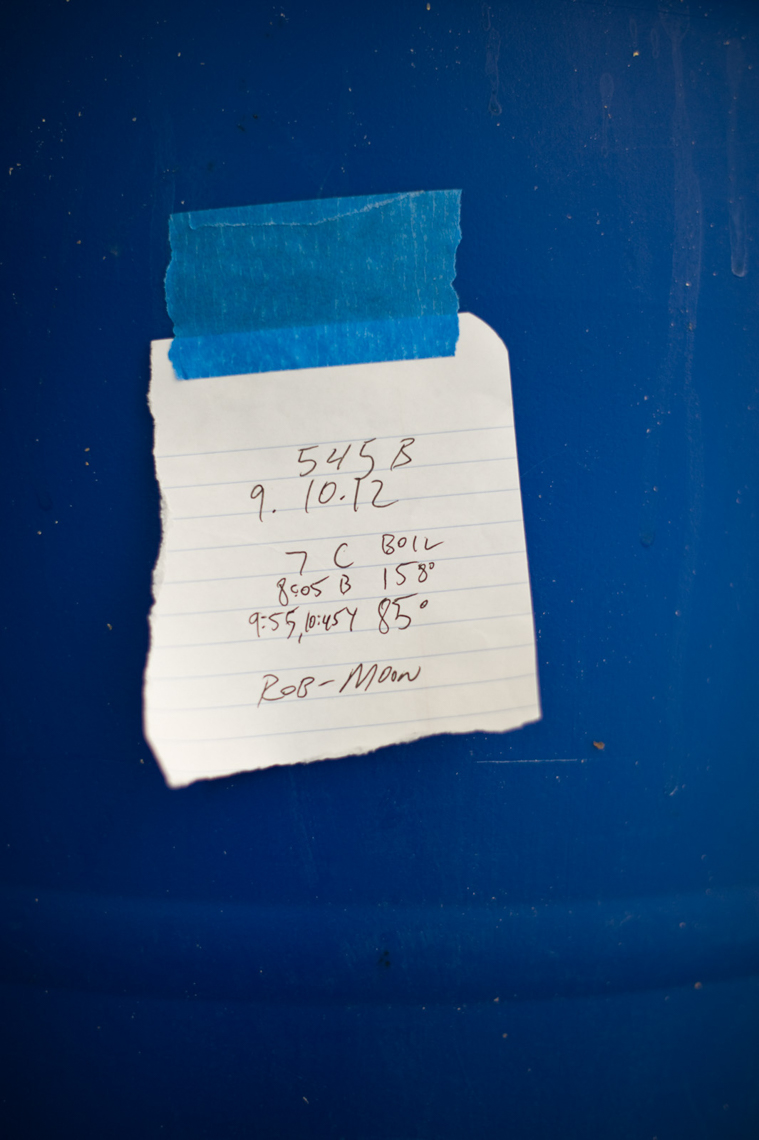 545 B
9.10.12
7 C BOIL
8:05 B 158°
9:55, 10:45 Y 85°
ROB-MOON